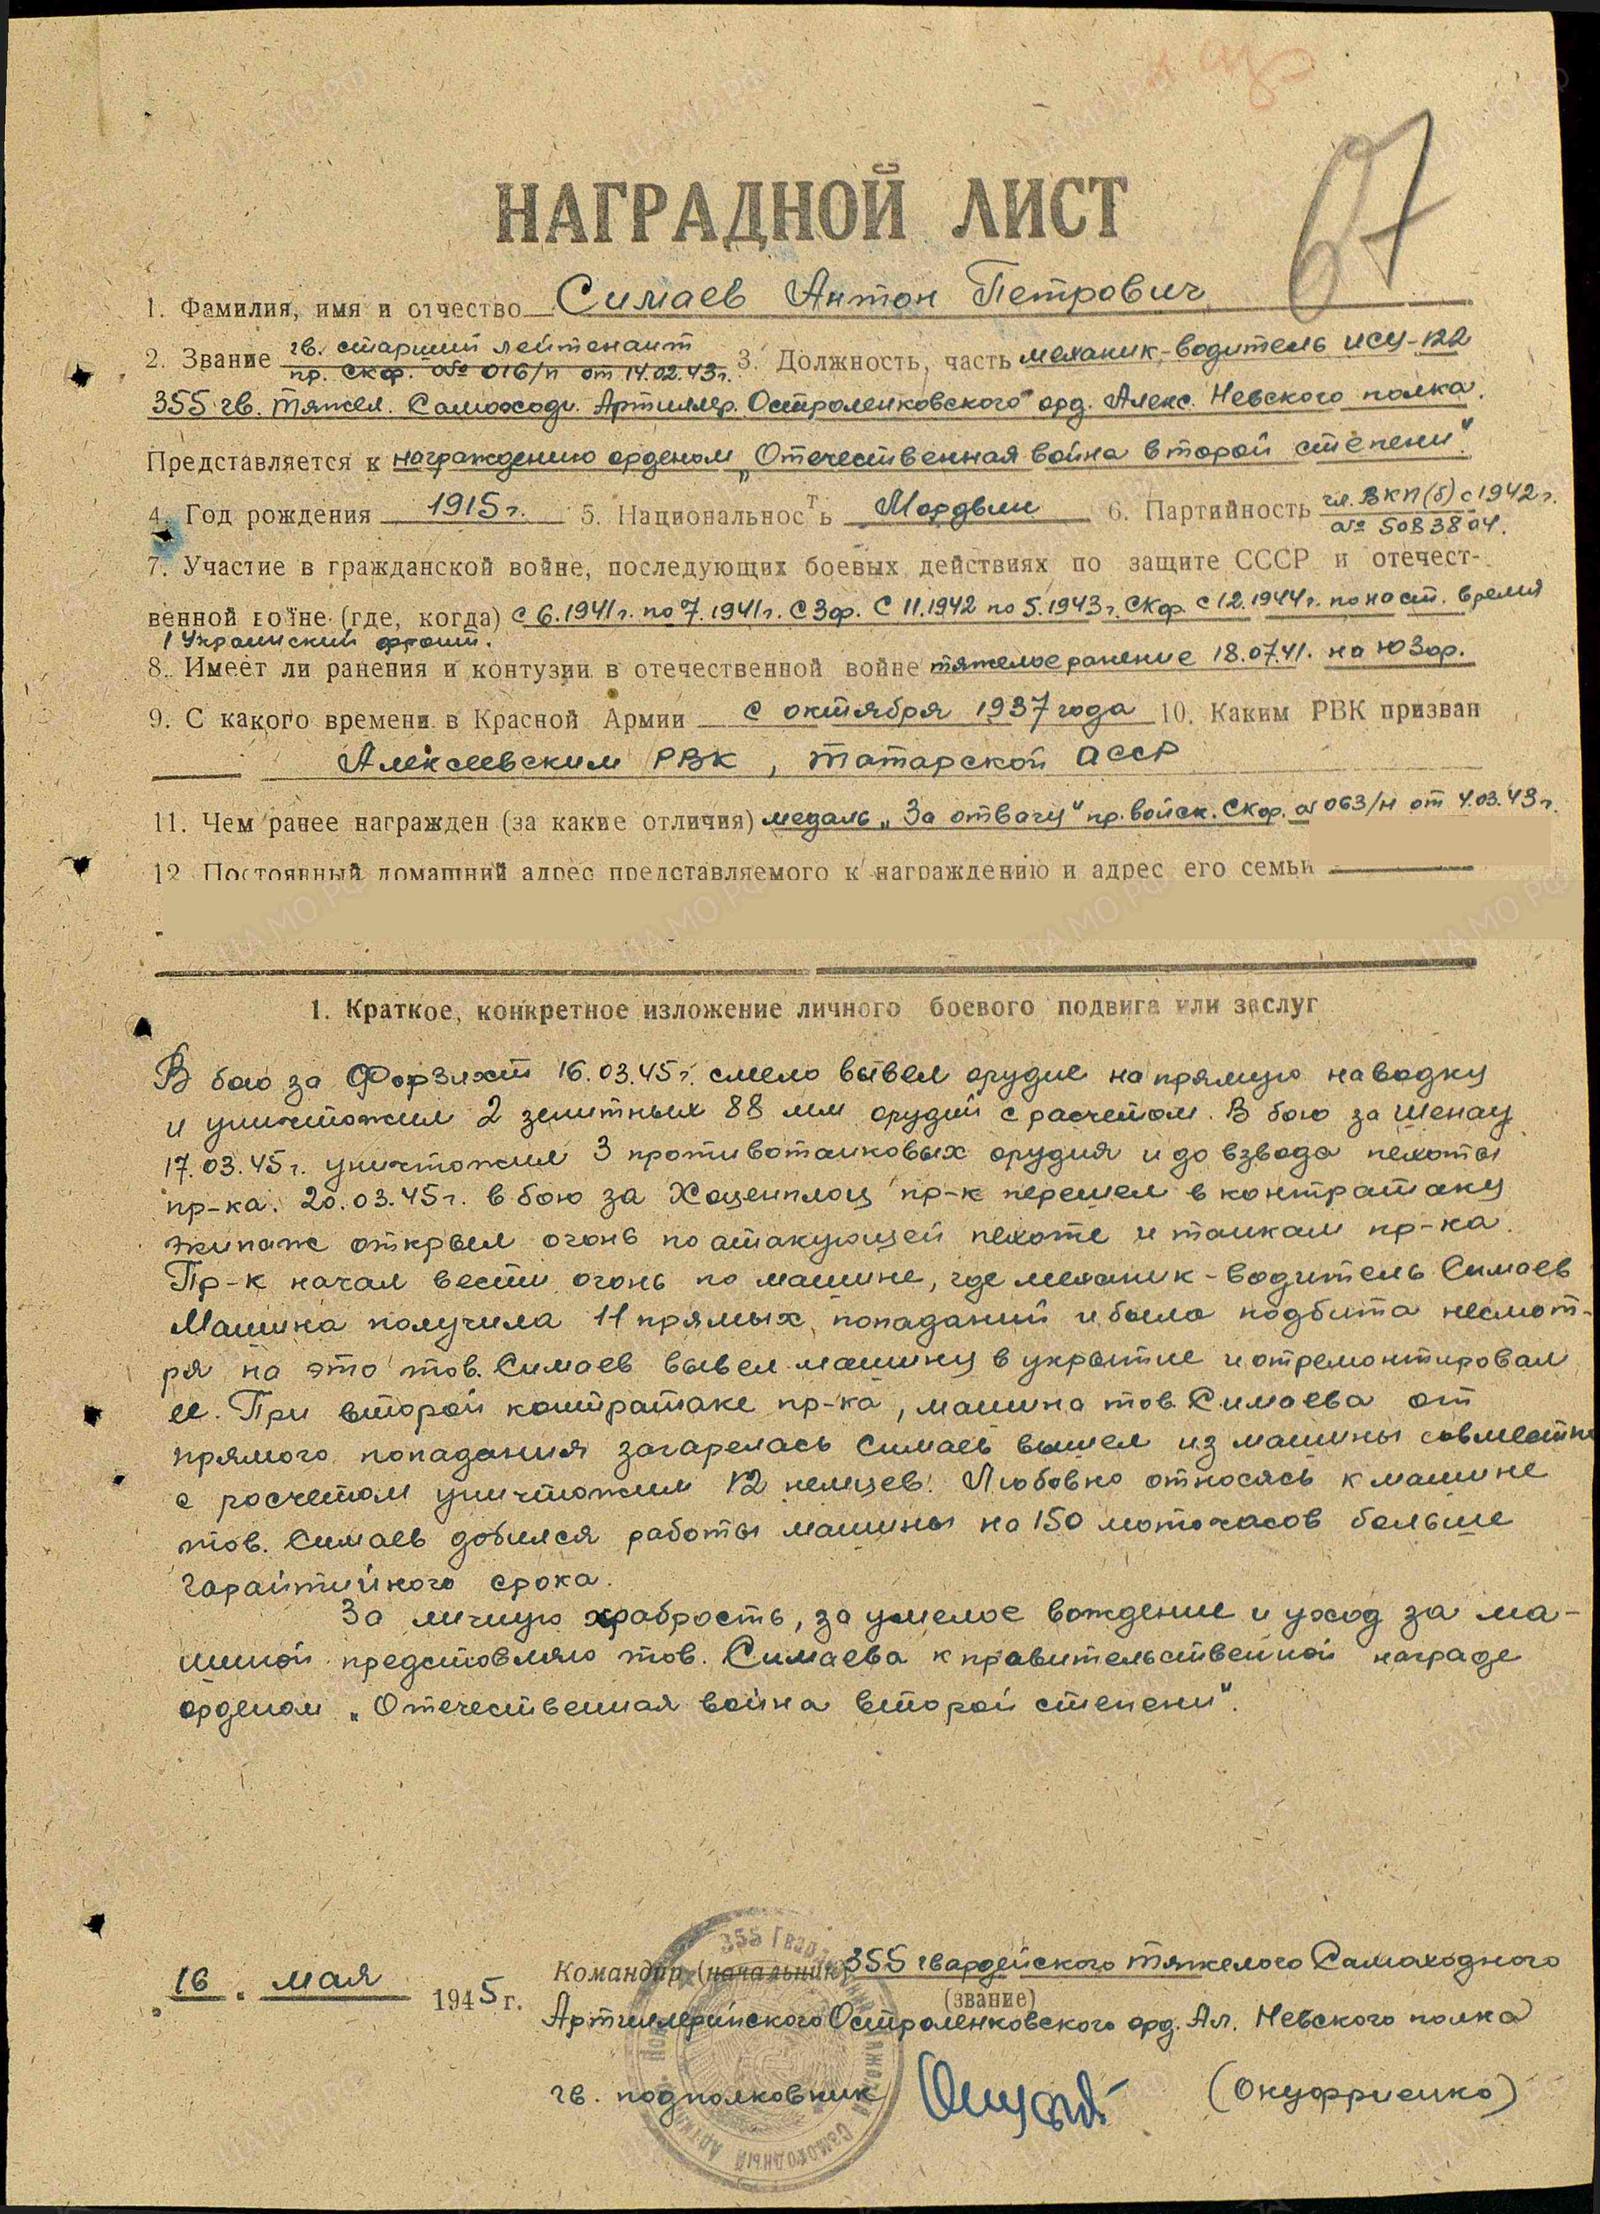 67
НАГРАДНОЙ ЛИСТ
1. Фамилия, имя и отчество Симаев Антон Петрович
2. Звание гв. старший лейтенант 3. Должность, часть механик-водитель ИСУ-122
пр. СКф. № 016/п от 14.02.43г.
355 гв. тяжел. Самоходн. Артиллер. Остроленковского орд. Алекс. Невского полка.
Представляется к награждению орденом „Отечественная война второй степени".
4. Год рождения 1915г. 5. Национальность Мордвин 6. Партийность чл. ВКП(б) с 1942г.
№ 5083804.
7. Участие в гражданской войне, последующих боевых действиях по защите СССР и отечест-
венной войне (где, когда) с 6.1941г. по 7.1941г. СЗф. С 11.1942 по 5.1943г. СКф. с 12.1944г. по наст. время
1 Украинский фронт.
8. Имеет ли ранения и контузии в отечественной войне тяжелое ранение 18.07.41. на ЮЗф.
9. С какого времени в Красной Армии с октября 1937 года 10. Каким РВК призван
Алексеевским РВК, татарской АССР
11. Чем ранее награжден (за какие отличия) медаль „За отвагу" пр. войск. СКф. № 063/н от 4.03.43г.
12. Постоянный домашний адрес представляемого к награждению и адрес его семьи
1. Краткое, конкретное изложение личного боевого подвига или заслуг
В бою за Форзихт 16.03.45г. смело вывел орудие на прямую наводку
и уничтожил 2 зенитных 88 мм орудий с расчетом. В бою за Шенау
17.03.45г. уничтожил 3 противотанковых орудия и до взвода пехоты
пр-ка. 20.03.45г. в бою за Хоценплоц пр-к перешел в контратаку
экипаж открыл огонь по атакующей пехоте и танкам пр-ка.
Пр-к начал вести огонь по машине, где механик-водитель Симаев
Машина получила 11 прямых попаданий и была подбита несмот-
ря на это тов. Симаев вывел машину в укрытие и отремонтировал
ее. При второй контратаке пр-ка, машина тов. Симаева от
прямого попадания загарелась Симаев вышел из машины совместно
с росчетом уничтожил 12 немцев. Любовно относясь к машине
тов. Симаев добился работы машины на 150 моточасов больше
гарантийного срока.
За личную храбрость, за умелое вождение и уход за ма-
шиной представляю тов. Симаева к правительственной награде
орденом „Отечественная война второй степени".
16. мая 1945г.
Командир (начальник) 355 гвардейского тяжелого Самоходного
(звание)
Артиллерийского Остроленковского орд. Ал. Невского полка
гв. подполковник (Онуфриенко)